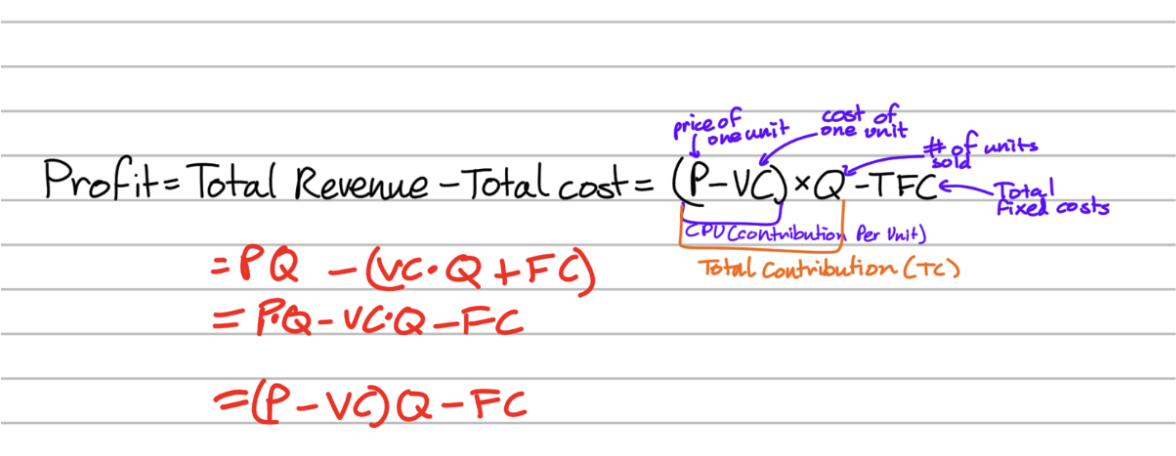 price of
one unit
cost of
one unit
# of units
sold
Profit = Total Revenue - Total cost = (P-VC) × Q - TFC
Total
fixed costs
CPU (contribution Per Unit)
Total Contribution (TC)
= PQ - (VC·Q + FC)
= P·Q - VC·Q - FC
= (P - VC) Q - FC